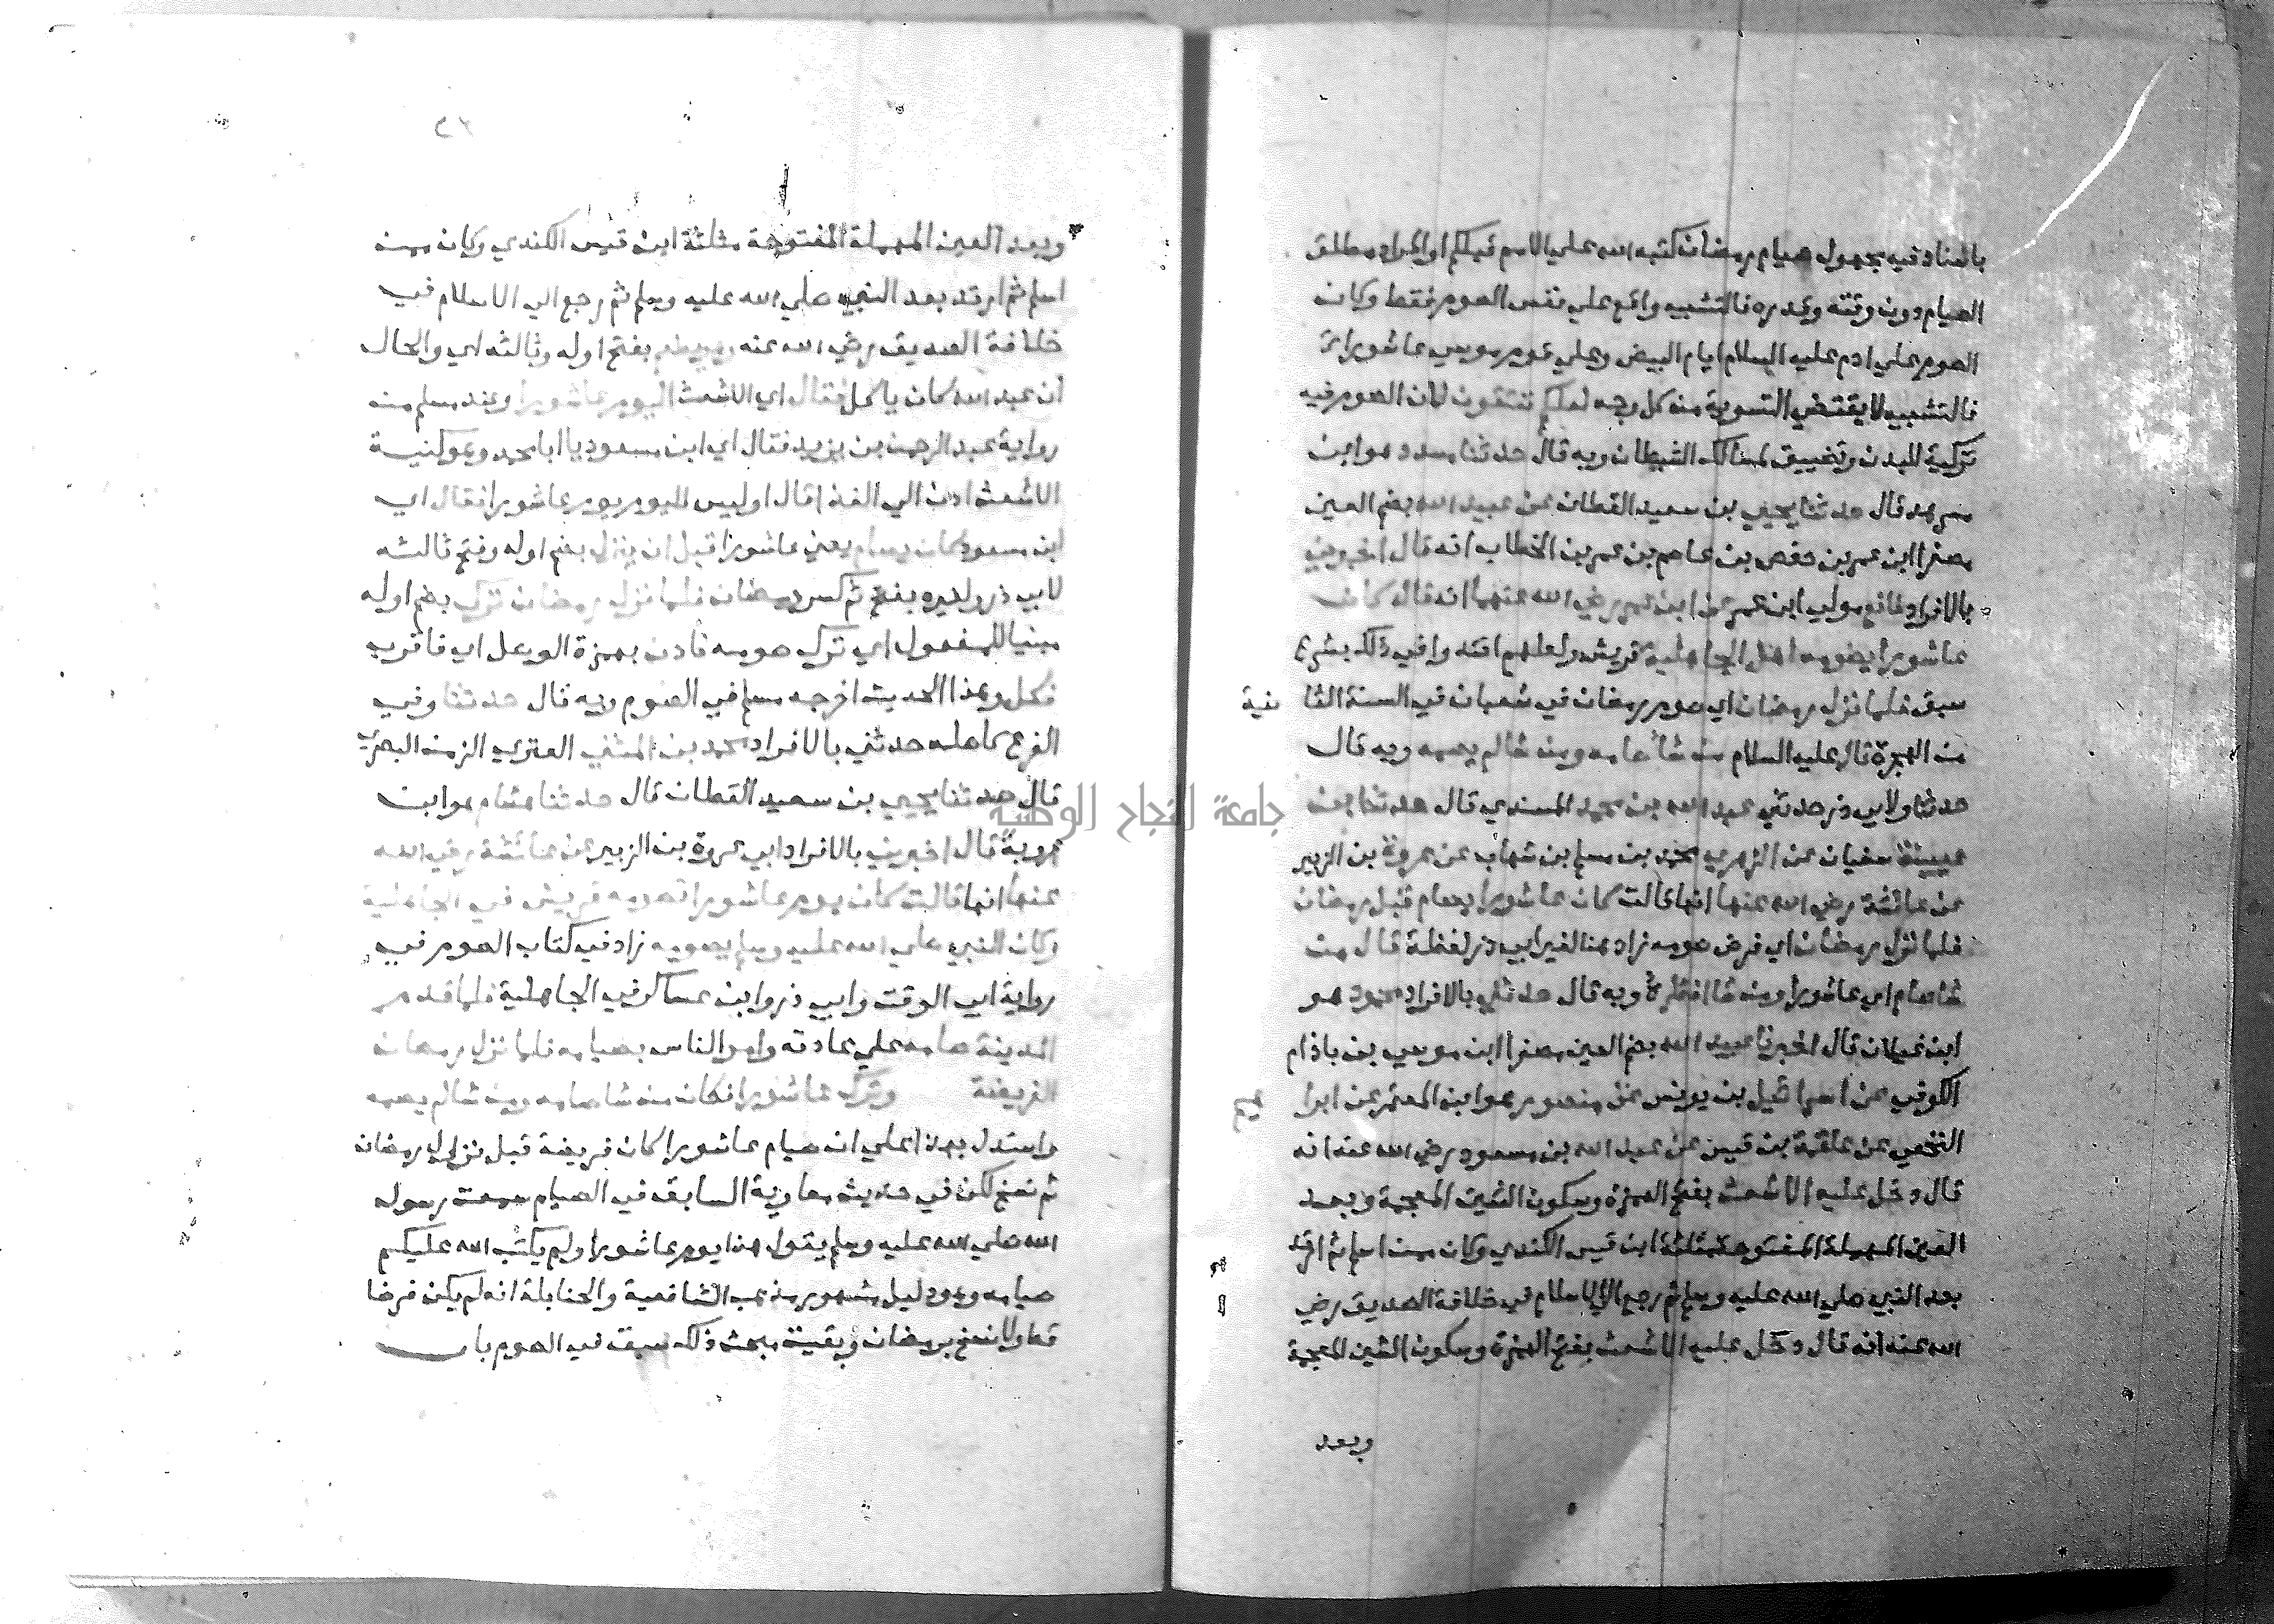 باسناد فيه مجهول صيام رمضان كتبه الله علي الامم قبلكم او المراد مطلق
الصيام دون وقته وقدره فالتشبيه واقع علي نفس الصوم فقط وكان
الصوم علي ادم عليه السلام ايام البيض وعلي قوم موسي عاشورا
فالتشبيه لا يقتضي التسوية من كل وجه لعلكم تتقون لان الصوم فيه
تزكية للبدن وتضييق لمسالك الشيطان وبه قال حدثنا مسدد هو ابن
مسرهد قال حدثنا يحيي بن سعيد القطان عن عبيد الله بضم العين
مصغرا ابن عمر بن حفص بن عاصم بن عمر بن الخطاب انه قال اخبرني
بالافراد نافع مولي ابن عمر عن ابن عمر رضي الله عنهما انه قال كان
عاشورا يصومه اهل الجاهلية قريش ولعلهم اقتدوا في ذلك بشرع
سبق فلما نزل رمضان اي صوم رمضان في شعبان في السنة الثا نية
من الهجرة قال عليه السلام من شا صامه ومن شا لم يصمه وبه قال
حدثنا ولابي ذر حدثني عبد الله بن محمد المسندي قال حدثنا بن
عيينة سفيان عن الزهري محمد بن مسلم بن شهاب عن عروة بن الزبير
عن عائشة رضي الله عنها انها قالت كان عاشورا يصام قبل رمضان
فلما نزل رمضان اي فرض صومه زاد هنا لغير ابي ذر لفظة قال من
شا صام اي عاشورا ومن شا افطره وبه قال حدثني بالافراد محمود هو
ابن غيلان قال اخبرنا عبيد الله بضم العين مصغرا ابن موسي بن باذام
الكوفي عن اسرائيل بن يونس عن منصور هو ابن المعتمر عن ابرا هيم
النخعي عن علقمة بن قيس عن عبد الله بن مسعود رضي الله عنه انه
قال دخل عليه الاشعث بفتح الهمزة وسكون الشين المعجمة وبعد
العين المهملة المفتوحة مثلثة ابن قيس الكندي وكان ممن اسلم ثم ارتد
بعد النبي صلي الله عليه وسلم ثم رجع الي الاسلام في خلافة الصديق رضي
الله عنه انه قال دخل عليه الاشعث بفتح الهمزة وسكون الشين المعجمة
وبعد
وبعد العين المهملة المفتوحة مثلثة ابن قيس الكندي وكان ممن
اسلم ثم ارتد بعد النبي صلي الله عليه وسلم ثم رجع الي الاسلام في
خلافة الصديق رضي الله عنه وهو يطعم بفتح اوله وثالثه اي والحال
ان عبد الله كان ياكل فقال اي الاشعث اليوم عاشورا وعند مسلم من
رواية عبد الرحمن بن يزيد فقال اي ابن مسعود يا ابا محمد وهو كنية
الاشعث ادن الي الغذا قال اوليس اليوم يوم عاشورا فقال اي
ابن مسعود كان يصام يعني عاشورا قبل ان ينزل بضم اوله وفتح ثالثه
لابي ذر ولغيره بفتح ثم كسر رمضان فلما نزل رمضان ترك بضم اوله
مبنيا للمفعول اي ترك صومه فادن بهمزة الوصل اي فاقرب
فكل وهذا الحديث اخرجه مسلم في الصوم وبه قال حدثنا وفي
الفرع كاصله حدثني بالافراد محمد بن المثني العنزي الزمن البصري
قال حدثنا يحيي بن سعيد القطان قال حدثنا هشام هو ابن
عروة قال اخبرني بالافراد ابي عروة بن الزبير عن عائشة رضي الله
عنها انها قالت كان يوم عاشورا تصومه قريش في الجاهلية
وكان النبي صلي الله عليه وسلم يصومه زاد في كتاب الصوم في
رواية ابي الوقت وابي ذر وابن عساكر في الجاهلية فلما قدم
المدينة صامه علي عادته وامر الناس بصيامه فلما نزل رمضان
الفريضة وترك عاشورا فكان من شا صامه ومن شا لم يصمه
واستدل بهذا علي ان صيام عاشورا كان فريضة قبل نزول رمضان
ثم نسخ لكن في حديث معاوية السابق في الصيام سمعت رسول
الله صلي الله عليه وسلم يقول هذا يوم عاشورا ولم يكتب الله عليكم
صيامه وهو دليل مشهور مذهب الشافعية والحنابلة انه لم يكن فرضا
قط ولا نسخ برمضان وبقية مبحث ذلك سبق في الصوم باب
جامعة النجاح الوطنية